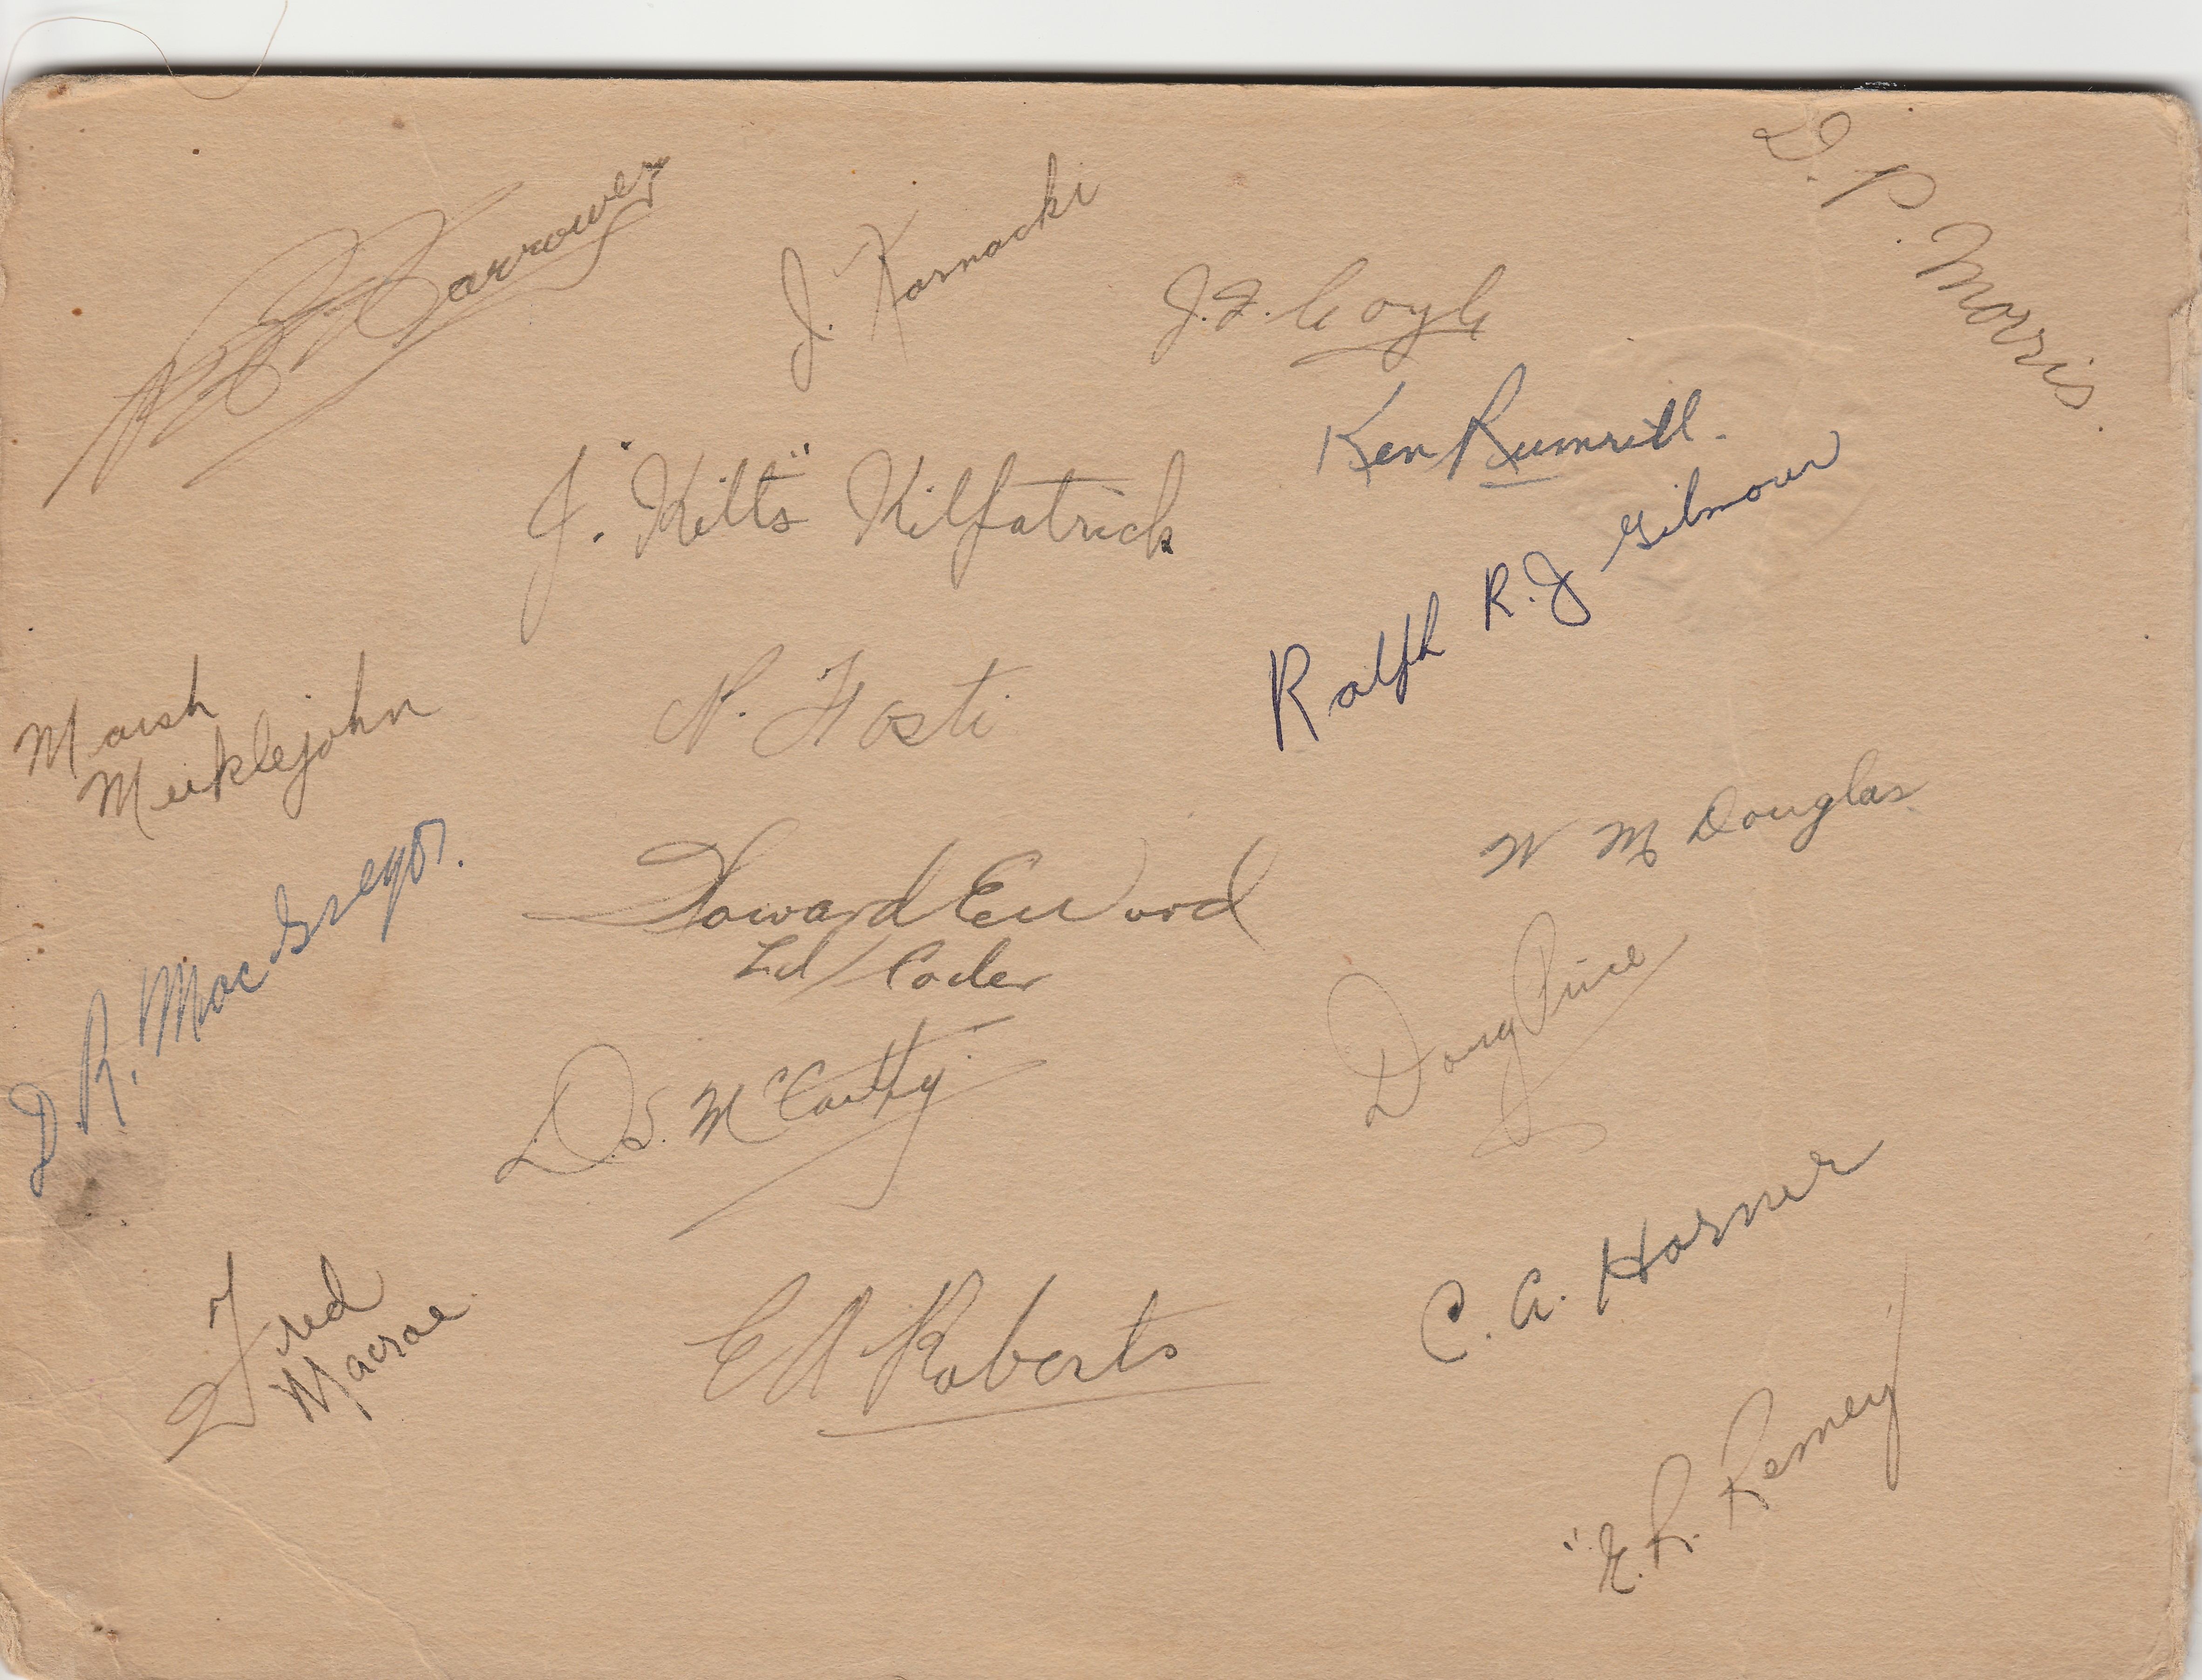 Barrower
J. Karnacki
J.F. Coyle
D. P. Morris
J. "Kilts" Kilpatrick
Ken Rumrill.
Ralph R.J Gilmour
Marsh
Meiklejohn
N. Fosti
W M Douglas
D R. MacGregor.
Howard E Wood
Ld/Coder
Doug Price
D.S. McCarthy
C. A. Horner
Fred
Macrae
Ed Roberts
"E. R. Remey